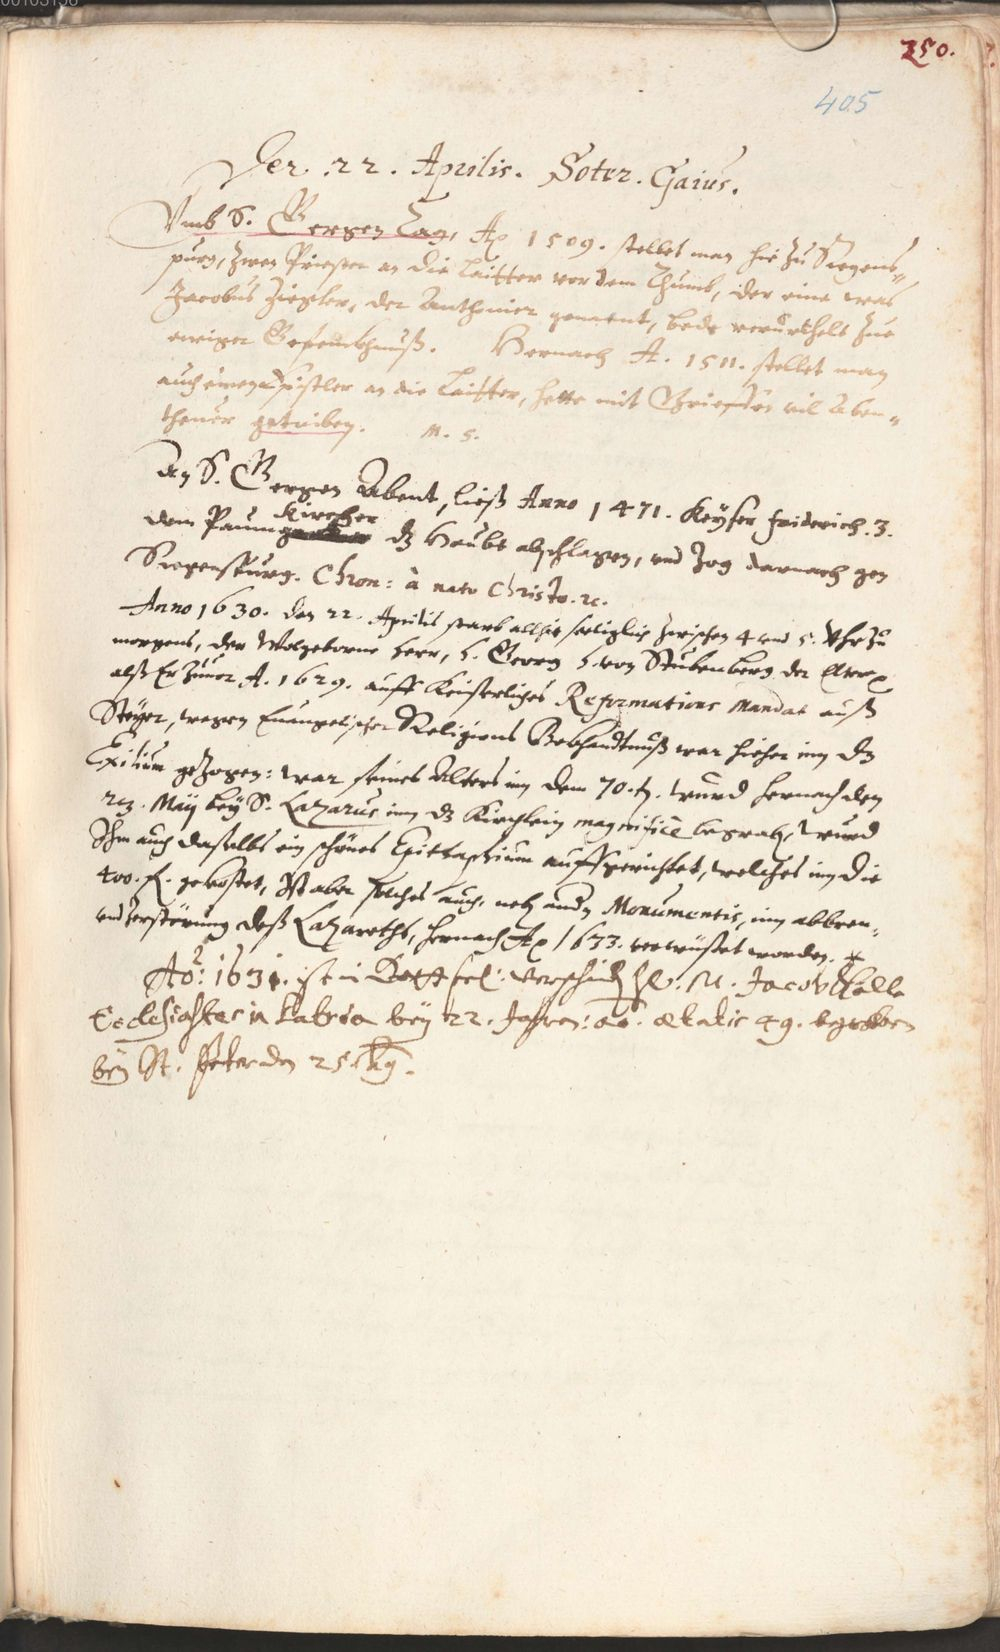 250.
405
Der. 22. Aprilis. Soter. Gaius.
Vmb S. Gergen Tag, Ao 1509. stellet man hie zu Regens„
purg, zwen Priester an die Laitter vor dem Thumb, der eine was
Jacobus Ziegler, der Anthonier genennt, bede verurthelt zue
ewiger Gefenckhnuß. Hernach A. 1511. stellet man
auch einen Epistler an die Laitter, hette mit Brieffen vil Aben„
theuer getriben. M. S.
An S. Gergen Abent, ließ Anno 1471. Keyser Friderich. 3.
Kircher
dem Paum dz Haubt abschlagen, und zog darnach gen
Regenspurg. Chron: à nato Christo. ꝛc.
Anno 1630. den 22. Aprilis starb allhie seeliglich zwischen 4 und 5. Uhr zu
morgens, der Wolgeborne Herr, H. Georg H. von Stubenberg der Elter
alß Er zuvor A. 1629. auffs Keiserliches Reformations Mandat auß
Steyer, wegen Euangelischer Religions Bekhandtnuß war hieher inn dz
Exilium gezogen: war seines Alters inn dem 70. Wurd hernach den
Maij beÿ S. Lazarus inn dz Kirchlein magnificè begraben, Wurd
Ihm auch daselbst ein schönes Epittaphium auffgerichtet, welches inn die
400. fl. gekostet, Ist aber solches auch, neben andern Monumentis, inn abbren„
und zerstörung deß Lazareths, hernach Ao 1633. verwüstet worden.
Ao: 1631. ist in Gott sel: verschieden H. M. Jacob
Ecclesiastes in beÿ 22. Jahren: aō. ætatis 49. begraben
beÿ St. Peter den 25.